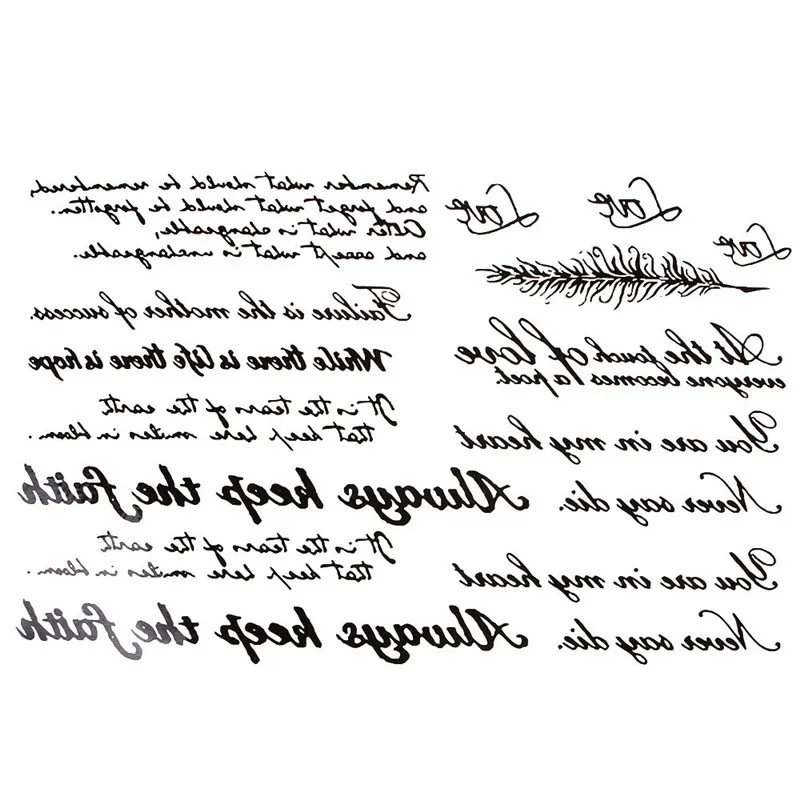 Remember what should be remembered,
and forget what should be forgotten.
Alter what is changeable,
and accept what is unchangeable.
Failure is the mother of success.
While there is life there is hope
It is the tears of the earth
that keep here smiles in bloom.
Always keep the faith
It is the tears of the earth
that keep here smiles in bloom.
Always keep the faith
Love
Love
Love
At the touch of love
everyone becomes a poet.
You are in my heart
Never say die.
You are in my heart
Never say die.